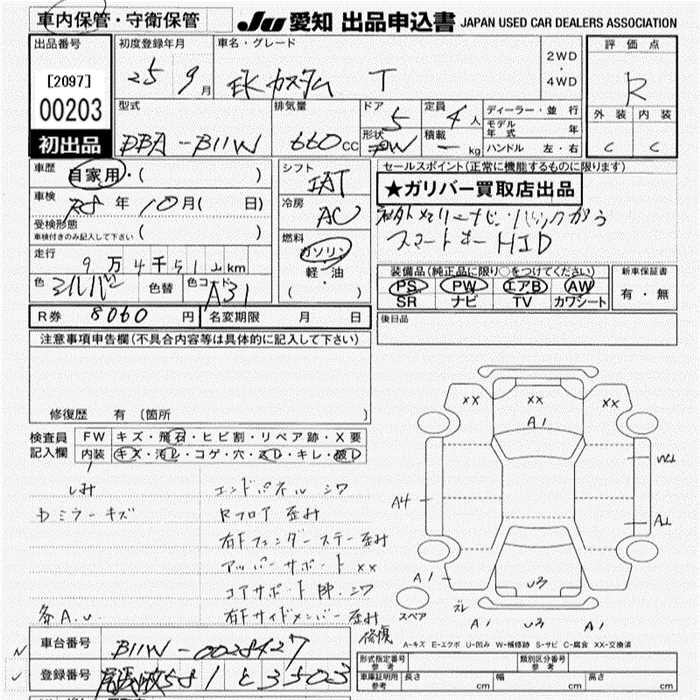 車内保管・守衛保管
JU 愛知 出品申込書 JAPAN USED CAR DEALERS ASSOCIATION
出品番号
[2097]
00203
初出品
初度登録年月
25 9月
車名・グレード
EKカスタム T
2WD
・
4WD
評価点
R
外装 内装
C C
型式
DBA-B11W
排気量
660cc
ドア
5
形状
定員
4人
積載
- kg
ディーラー・並行
モデル年式 年
ハンドル 左・右
車歴
自家用・( )
車検
R8年10月( 日)
受検形態
車検付きのみ記入して下さい ( )
走行
9万4千51 km
色 シルバー 色替 色コード A31
シフト
IAT
冷房
AC
燃料
ガソリン
軽・油
( )
セールスポイント(正常に機能するものに限ります)
★ガリバー買取店出品
スマートキー HID
装備品(純正品に限り○をつけてください)
PS PW エアB AW
SR ナビ TV カワシート
新車保証書
有・無
R券 8060円 名変期限 月 日
後日品
注意事項申告欄(不具合内容等は具体的に記入して下さい)
修復歴 有 (箇所 )
検査員記入欄
FW キズ・飛石・ヒビ割・リペア跡・X要
内装 キズ・汚れ・コゲ・穴・スレ・キレ・破れ
しみ
Dミラーキズ
エンドパネル シワ
Rフロア 歪み
右Fフェンダーステー歪み
アッパーサポート XX
コアサポート 脚.シワ
右Fサイドメンバー歪み
各A.U
XX XX XX
A1
A4
A1
U3
スペア
ズレ
A1 U3 A1
修復
A-キズ E-エクボ U-凹み W-補修跡 S-サビ C-腐食 XX-交換済
車台番号
B11W-0028427
登録番号
尾張小牧581 と 35023
形式指定番号 参考
類別区分番号 参考
車庫証明用 参考
長さ cm 幅 cm 高さ cm